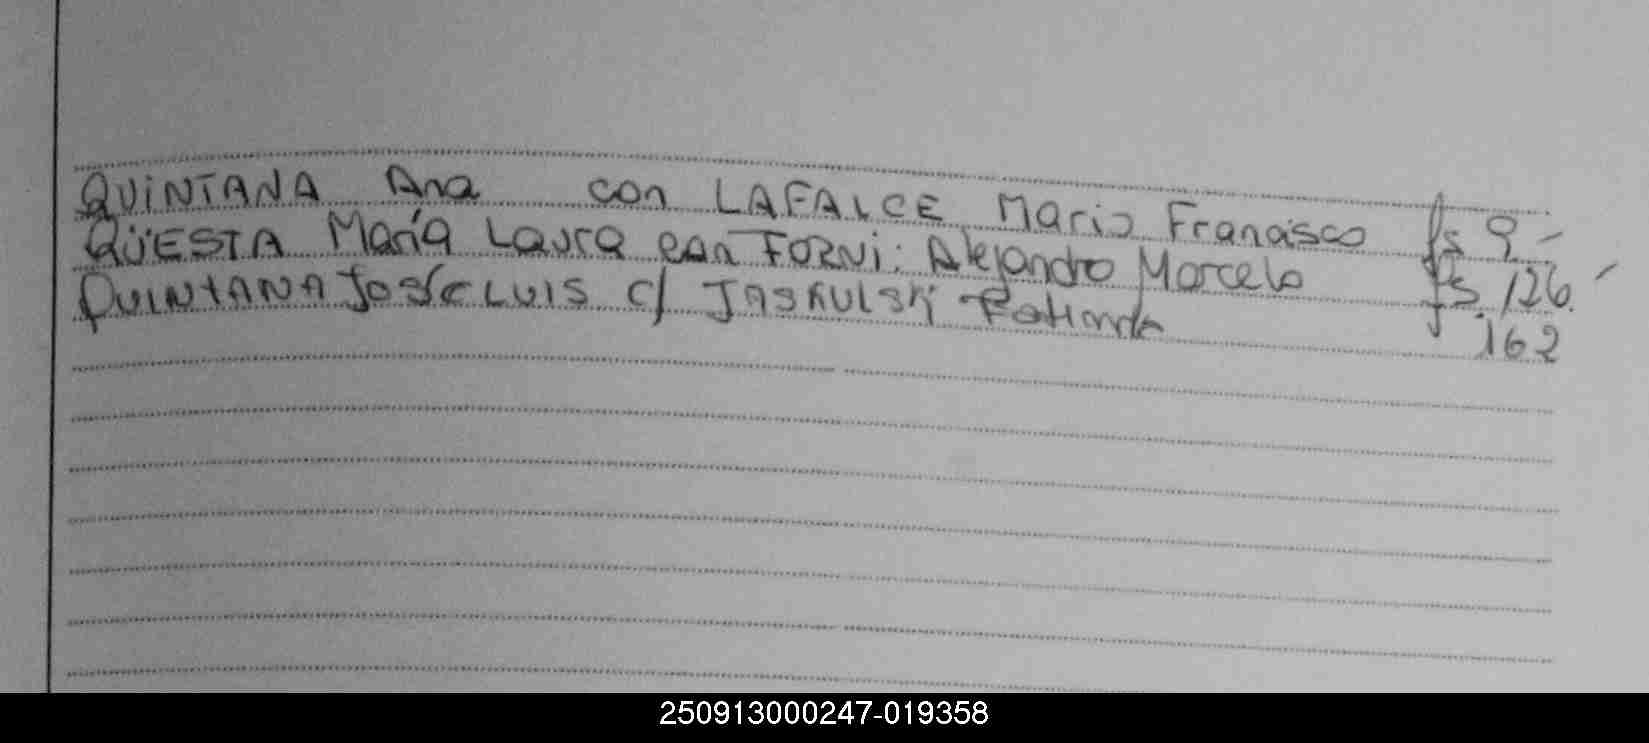 QUINTANA Ana con LAFALCE Mario Francisco fs 9.-
QÜESTA María Laura con FORNI: Alejandro Marcelo fs. 126.-
QUINTANA José LUIS c/ JASKULSKI 162
250913000247-019358